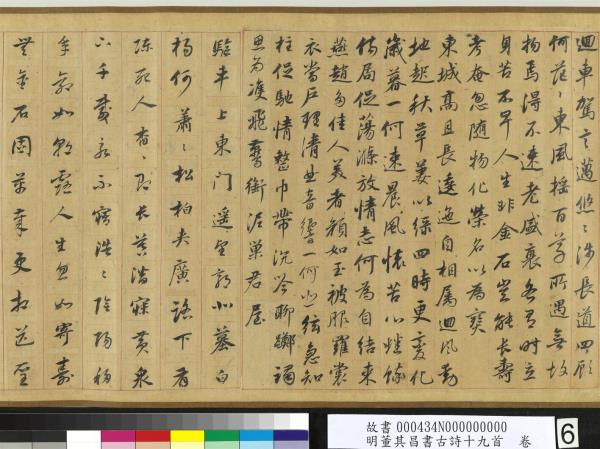 迴車駕言邁悠〻涉長道四顧
何茫〻東風搖百草所遇無故
物焉得不速老盛衰各有時立
身苦不早人生非金石豈能長壽
考奄忽隨物化榮名以為寶
東城高且長逶迤自相屬迴風動
地起秋草萋以綠四時更變化
歲暮一何速晨風懷苦心蟋蟀
傷局促蕩滌放情志何為自結束
燕趙多佳人美者顏如玉被服羅裳
衣當戶理清曲音響一何悲絃急知
柱促馳情整巾帶沉吟聊躑躅
思為雙飛燕銜泥巢君屋
驅車上東門遙望郭北墓白
楊何蕭〻松柏夾廣路下有
陳死人杳〻即長暮潛寐黃泉
下千載永不寤浩〻陰陽移
年命如朝露人生忽如寄壽
無金石固萬歲更相送賢
故書 000434N000000000
明董其昌書古詩十九首 卷
6